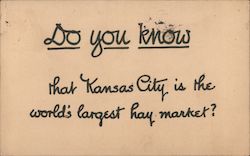 Do you know
that Kansas City is the
world's largest hay market?